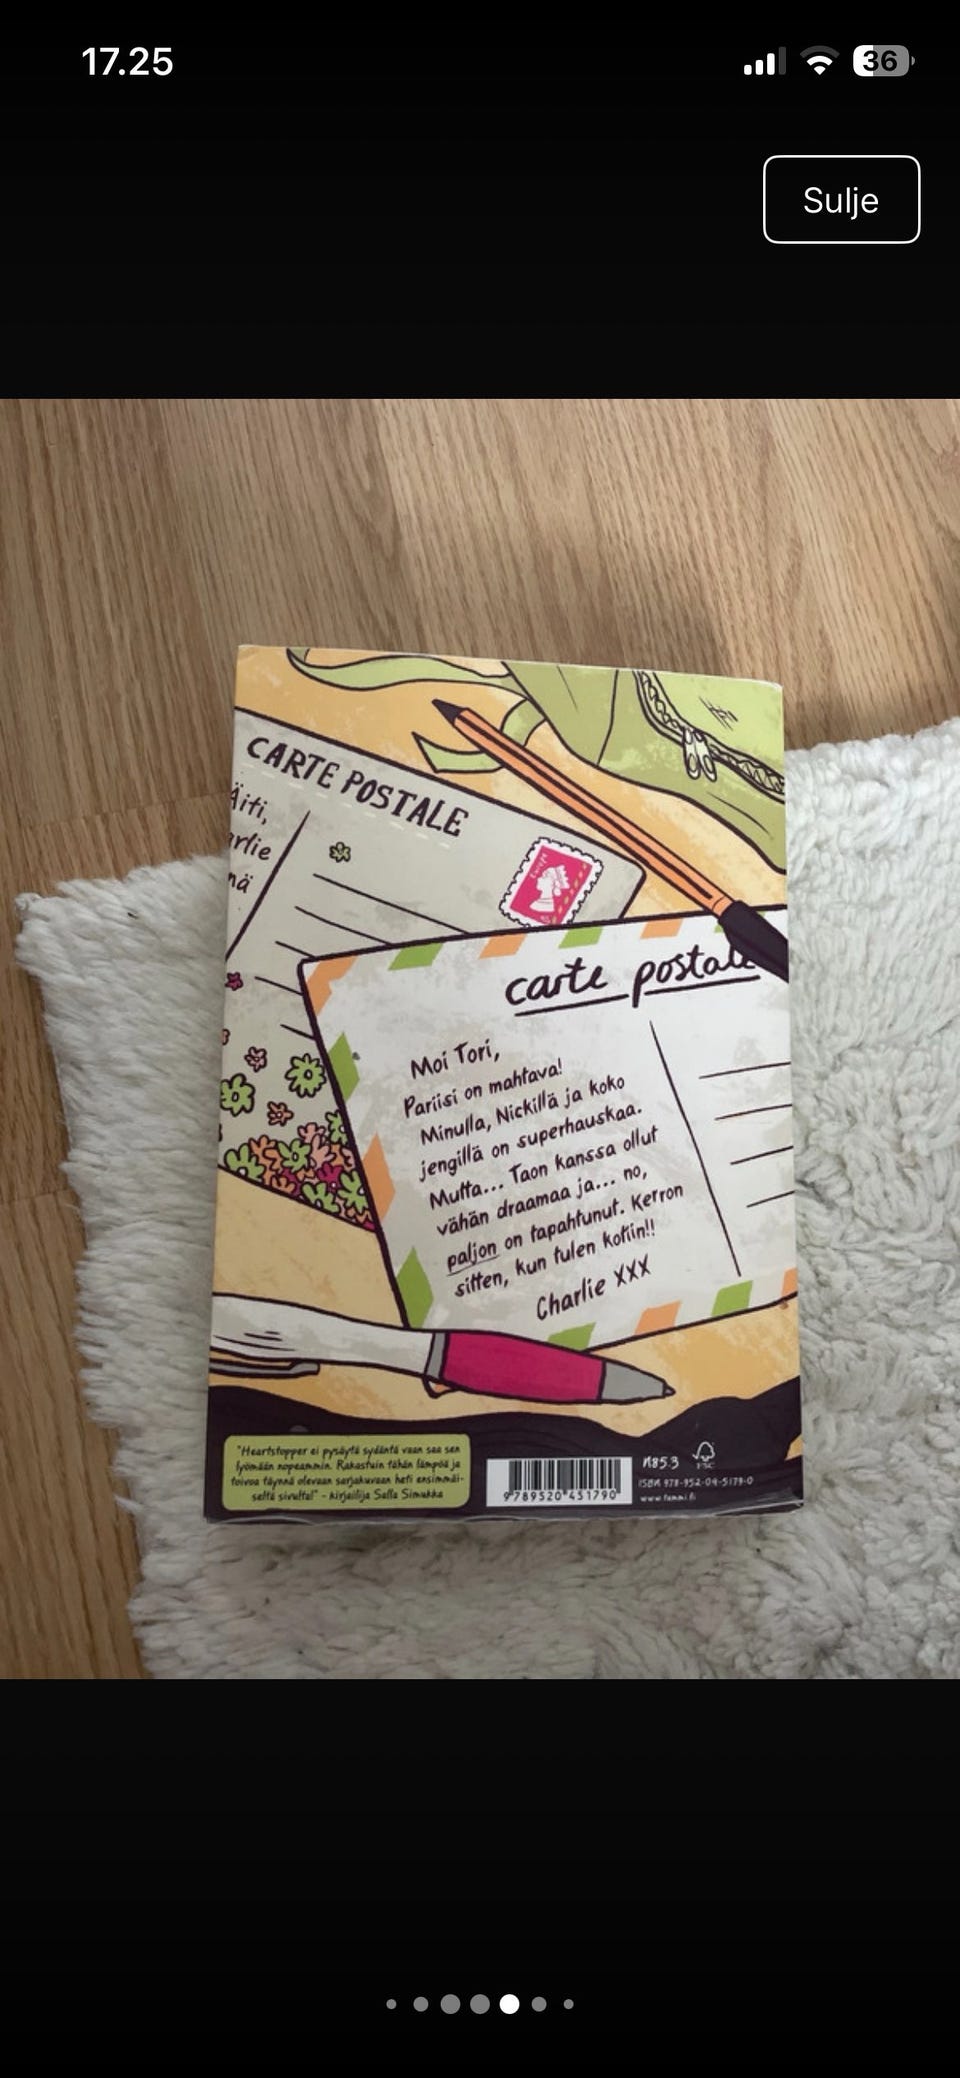 17.25
36
Sulje
CARTE POSTALE
Äiti,
arlie
nä
carte postale
Moi Tori,
Pariisi on mahtava!
Minulla, Nickillä ja koko
jengillä on superhauskaa.
Mutta... Taon kanssa ollut
vähän draamaa ja... no,
paljon on tapahtunut. Kerron
sitten, kun tulen kotiin!!
Charlie XXX
"Heartstopper ei pysäytä sydäntä vaan saa sen
lyömään nopeammin. Rakastuin tähän lämpöä ja
toivoa täynnä olevaan sarjakuvaan heti ensimmäi-
seltä sivulta!" - kirjailija Salla Simukka
9 789520 451790
N85.3
FSC
ISBN 978-952-04-5179-0
www.tammi.fi